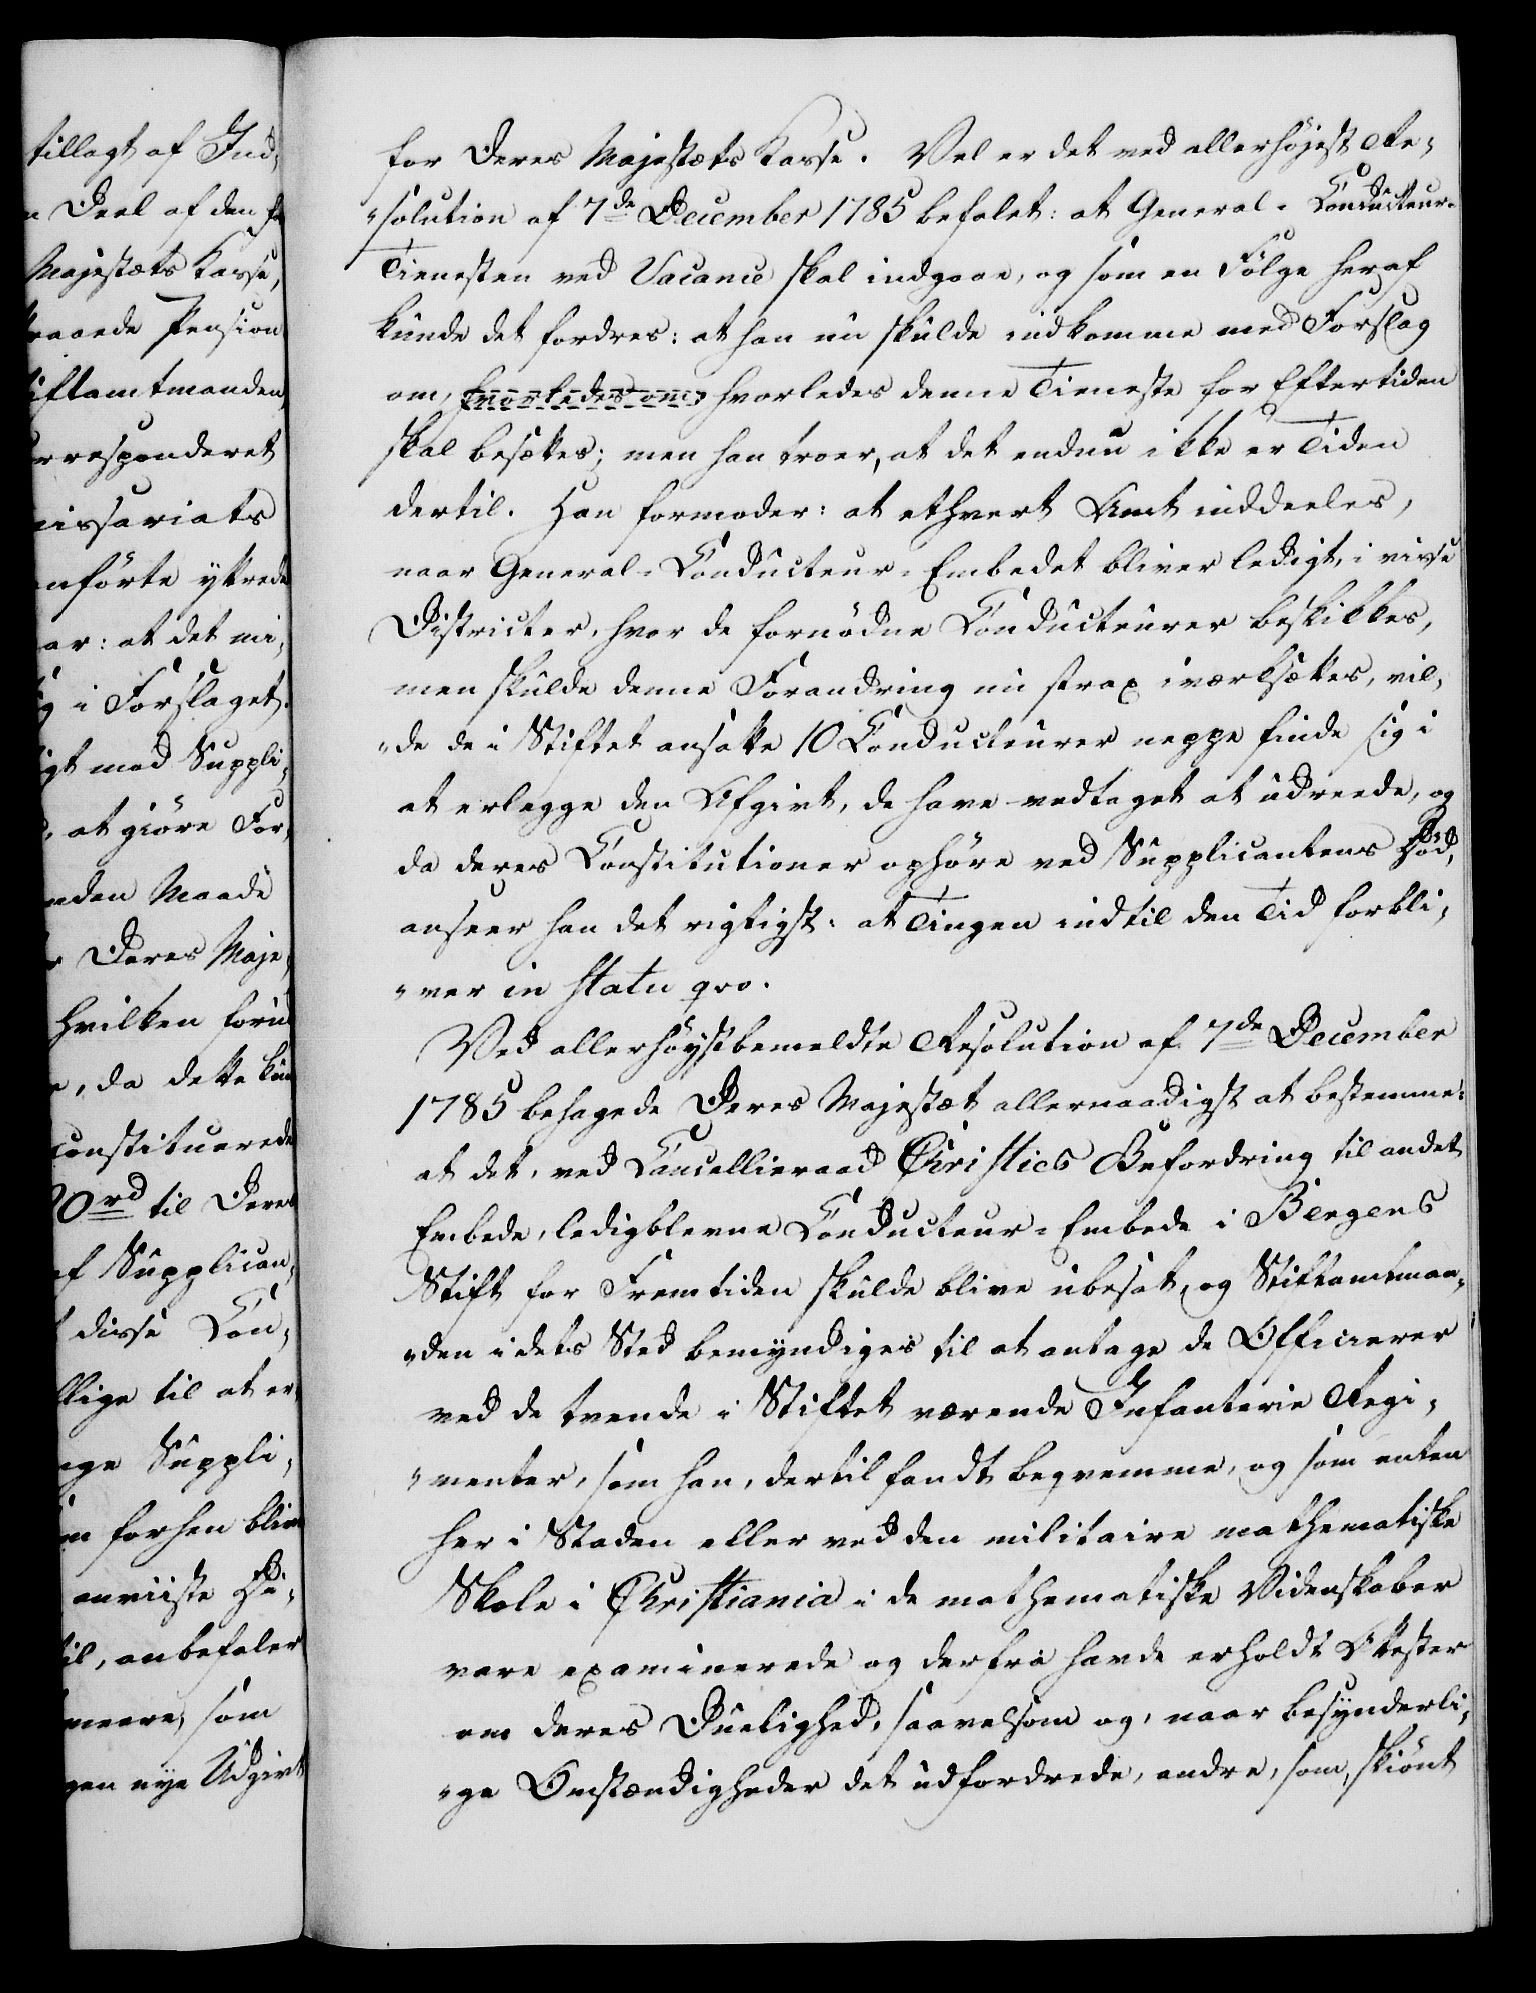 tillagt af Ind-
Deel af den
Majestæts Kasse,
Pension
iftamtmanden
rresponderet
missariats
nförte yttrede
ar: at det mi-
i Forslaget.
igt med Suppli-
, at giöre For-
nden Maade
Deres Maje-
hvilken forud
, da dette kun
constituerede
0rd til Deres
af Supplican-
disse Con-
llige til at er-
ge Suppli-
forhen blive
anviiste
til, anbefaler
meere, som
gen nye Udgivt
for Deres Majestæts Kasse. Vel er det ved allerhöjest Re-
"solution af 7de December 1785 befalet: at General-Conducteur-
Tienesten ved Vacance skal indgaae, og som en Fölge heraf
kunde det fordres: at han nu skulde indkomme med Forslag
om, hvorledes om, hvorledes denne Tieneste for Eftertiden
skal besættes; men han troer, at det endnu ikke er Tiden
dertil. Han formoder: at ethvert Amt inddeeles,
naar General-Conducteur-Embedet bliver ledigt, i visse
Districter, hvor de fornödne Conducteurer beskikkes,
men skulde denne Forandring nu strax iværksættes, vil-
"de de i Stiftet ansatte 10 Conducteurer neppe finde sig i
at erlegge den Afgivt, de have vedtaget at udreede, og
da deres Constitutioner ophöre ved Supplicantens Död,
anseer han det rigtigst: at Tingen indtil den Tid forbli-
"ver in statu qvo.
Ved allerhöystbemeldte Resolution af 7de December
1785 behagede Deres Majestæt allernaadigst at bestemme:
at det, ved Cancellieraad Christies Befordring til andet
Embede, ledigblevne Conducteur-Embede i Bergens
Stift for Fremtiden skulde blive ubesat, og Stiftamtman-
"den i dets Sted bemyndiges til at antage de Officierer
ved de tvende i Stiftet værende Infanterie Regi-
"menter, som han, dertil fandt beqvemme, og som enten
her i Staden eller ved den militaire mathematiske
Skole i Christiania i de mathematiske Videnskaber
vare examinerede og derfra havde erholdt Attester
om deres Duelighed, saavelsom og, naar besynderli-
"ge Omstændigheder det udfordrede, andre, som, skiönt